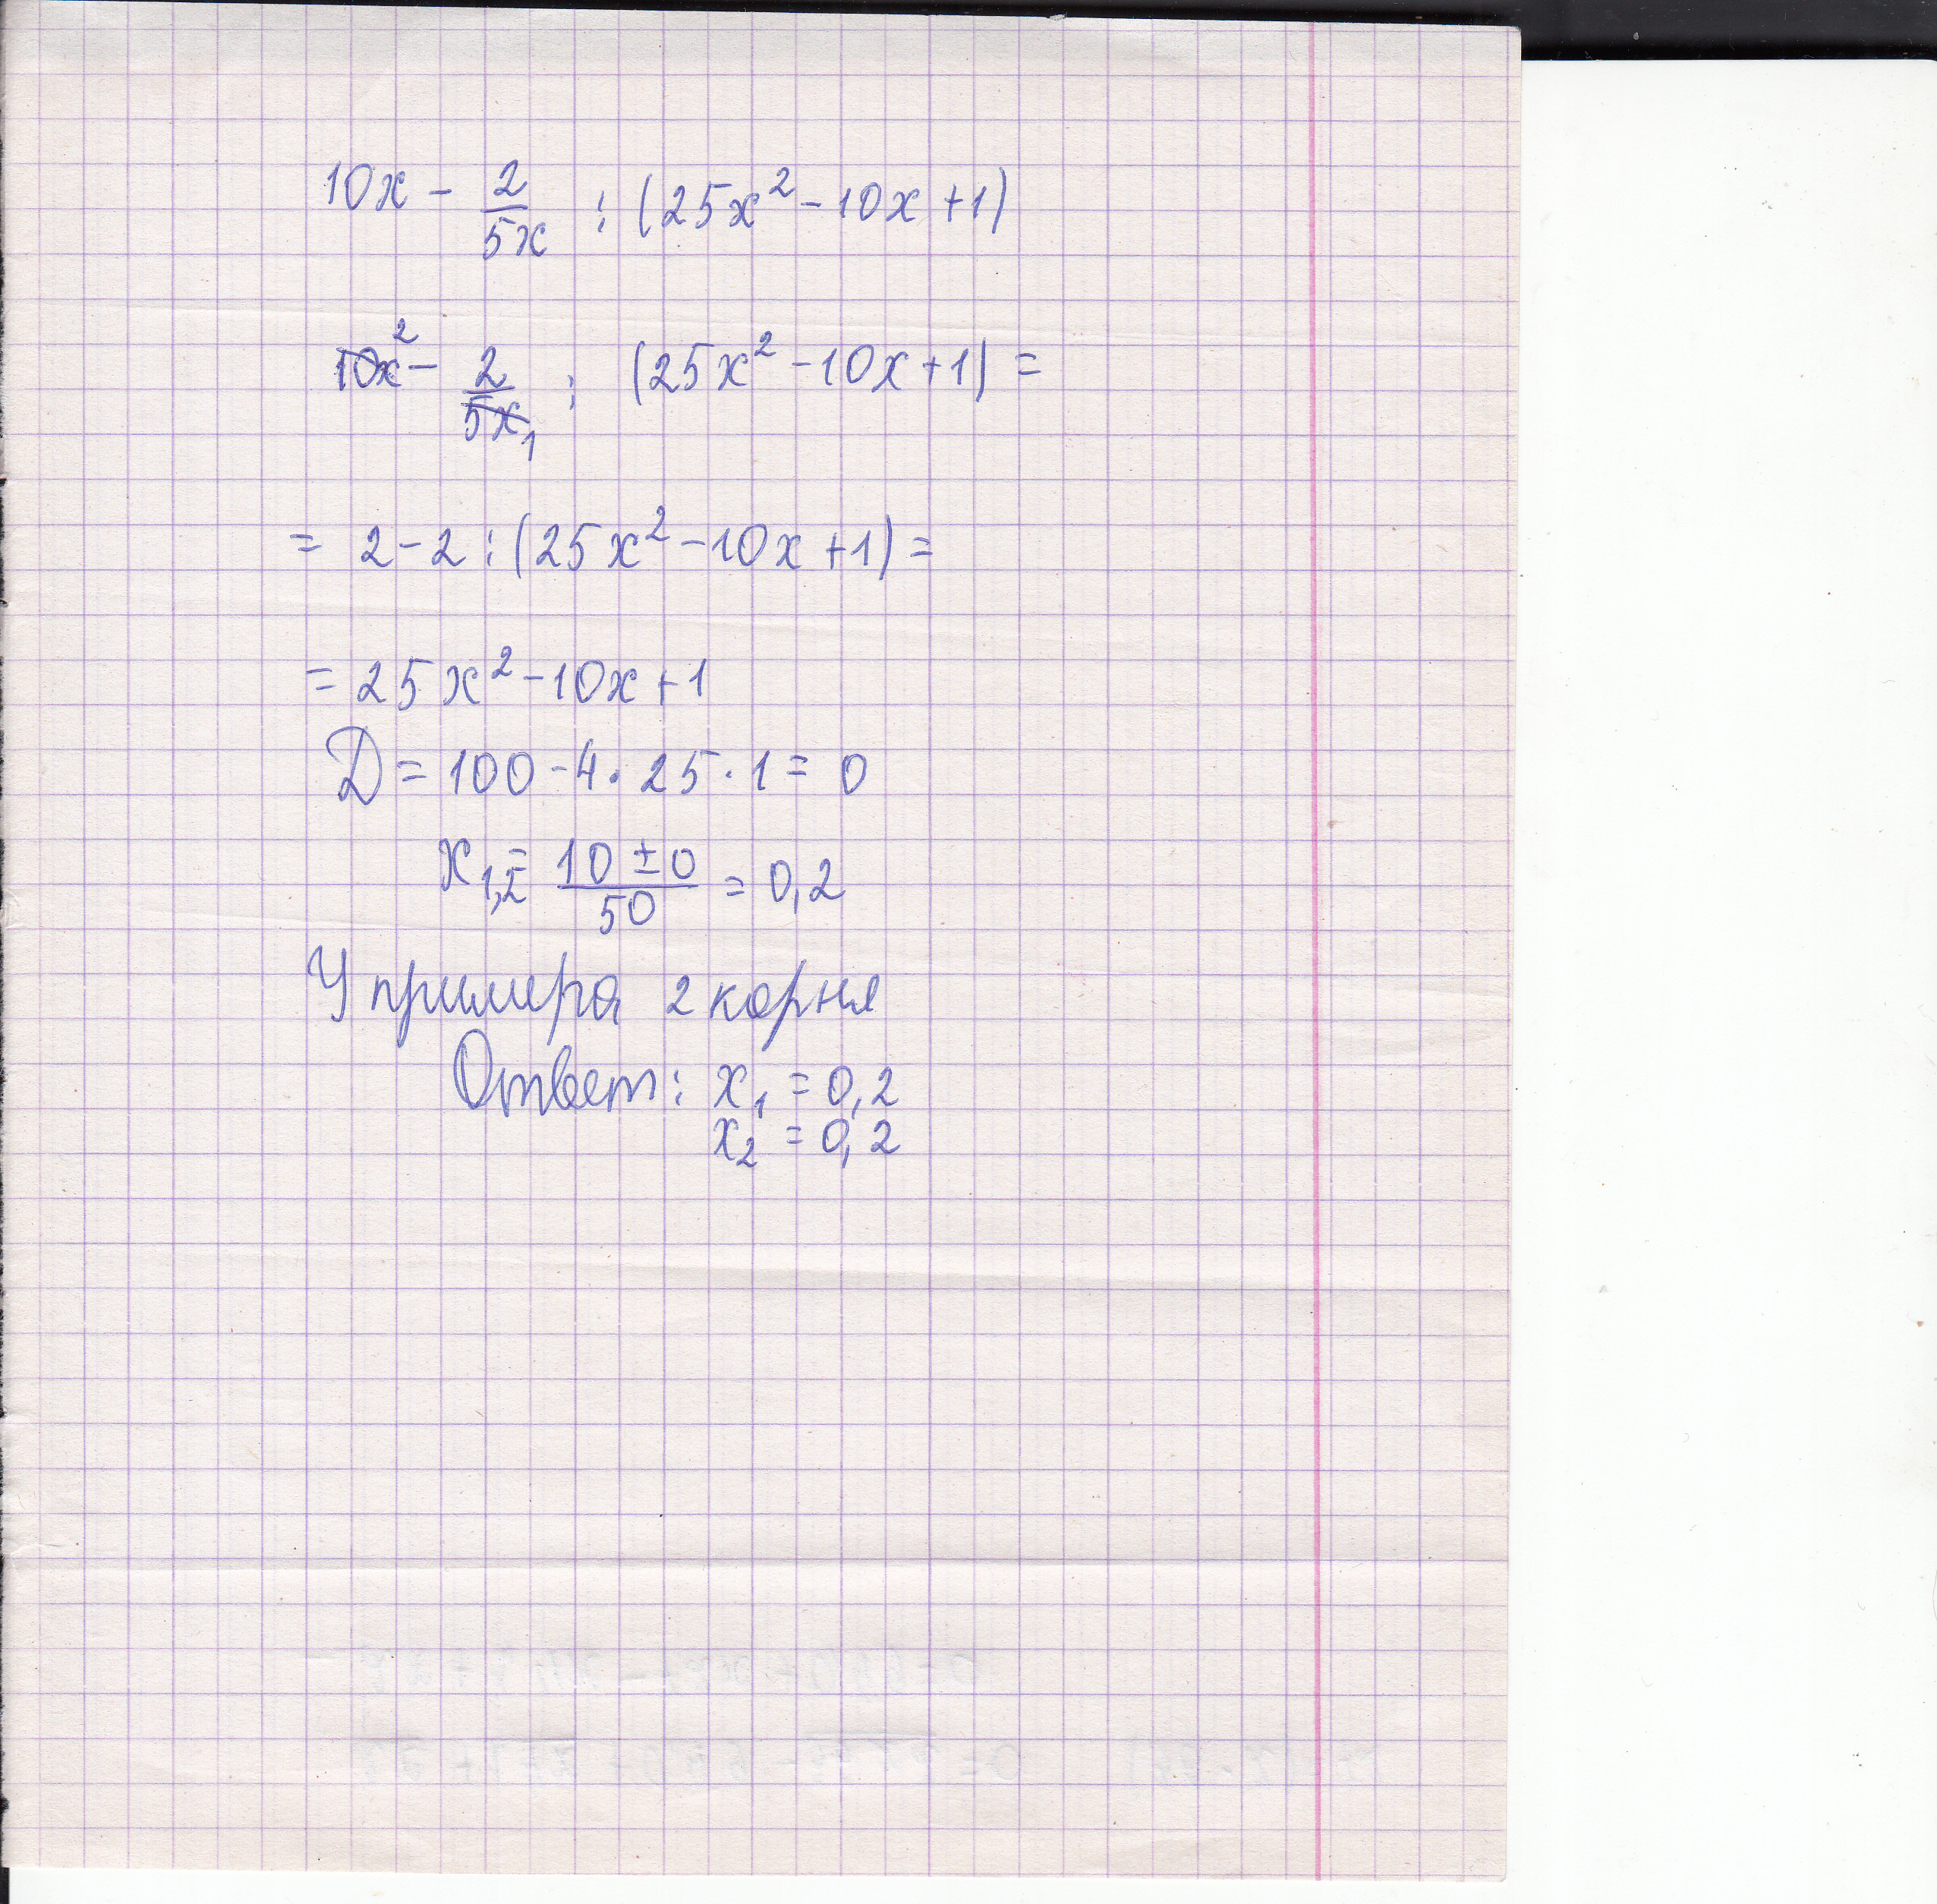 10x - 2/5x : (25x² - 10x + 1)
10x² - 2/5x₁ : (25x² - 10x + 1) =
= 2 - 2 : (25x² - 10x + 1) =
= 25x² - 10x + 1
D = 100 - 4 · 25 · 1 = 0
x₁,₂ = 10 ± 0/50 = 0,2
У примера 2 корня
Ответ: x₁ = 0,2
x₂ = 0,2